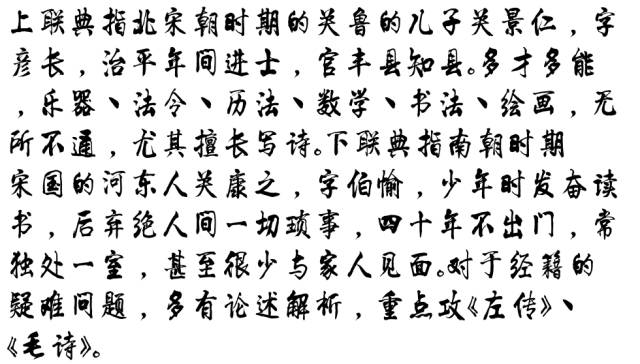 上联典指北宋朝时期的关鲁的儿子关景仁，字
彦长，治平年间进士，官丰县知县。多才多能
，乐器、法令、历法、数学、书法、绘画，无
所不通，尤其擅长写诗。下联典指南朝时期
宋国的河东人关康之，字伯愉，少年时发奋读
书，后弃绝人间一切琐事，四十年不出门，常
独处一室，甚至很少与家人见面。对于经籍的
疑难问题，多有论述解析，重点攻《左传》、
《毛诗》。